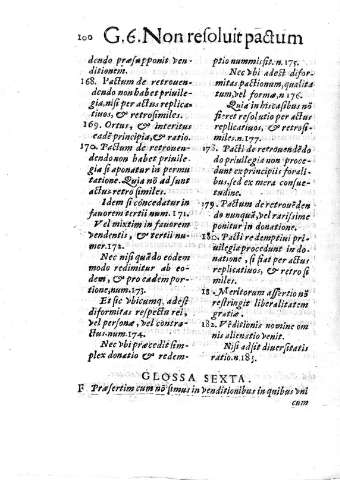 100 G. 6. Non resoluit pactum
dendo præsupponit ven-
ditionem.
168. Pactum de retrouen-
dendo non habet priuile-
gia, nisi per actus replica-
tiuos, & retrosimiles.
169. Ortus, & interitus
eadē principia, & ratio.
170. Pactum de retrouen-
dendo non habet priuile-
gia si aponatur in permu
tatione. Quia nō ad sunt
actus retro similes.
Idem si concedatur in
fauorem tertii num. 171.
Vel mixtim in fauorem
vendentis, & tertii nu-
mer. 172.
Nec nisi quādo eodem
modo redimitur ab eo-
dem, & pro eadem por-
tione, num. 173.
Et sic vbicumq, adest
diformitas respectu rei,
vel personæ, vel contra-
ctus. num. 174.
Nec vbi præcedit sim-
plex donatio & redem-
ptio nummis sit. n. 175.
Nec vbi adest difor-
mitas pactionum, qualita-
tum, vel formæ, n. 176.
Quia in his casibus nō
fieret resolutio per actus
replicatiuos, & retrosi-
miles. n. 177.
178. Pacti de retrouendē-
do priuilegia non proce-
dunt ex principiis forali-
bus, sed ex mera consue-
tudine.
179. Pactum de retrouēden
do nunquā, vel rarissime
ponitur in donatione.
180. Pacti redemptini pri-
uilegia procedunt in do-
natione, si fiat per actus
replicatiuos, & retro si
miles.
18. Meritorum assertio nō
restringit liberalitatem
gratiæ.
182. Vēditionis nomine om
nis alienatio venit.
Nisi adsit diuersitatis
ratio. n. 183.
GLOSSA SEXTA.
F Præsertim cum nō simus in venditionibus in quibus vni
cum